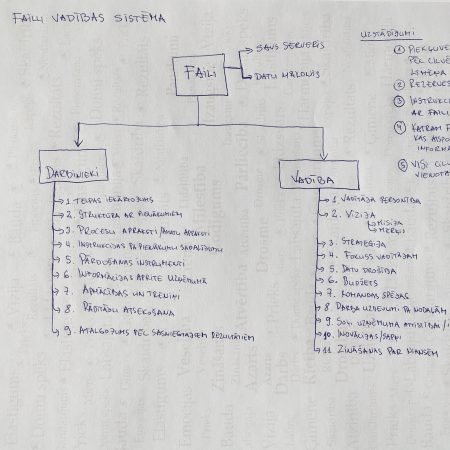 FAILU VADĪBAS SISTĒMA
FAILI
SAVS SERVERIS
DATU MĀKONIS
UZSTĀDĪJUMI
①
②
③
AR
④ KATRAM
⑤ VISI
DARBINIEKI
1. TELPAS IEKĀRTOJUMS
2. STRUKTŪRA AR PIENĀKUMIEM
3. PROCESU APRAKSTI/AMATU APRAKSTI
4. INSTRUKCIJAS PA PIENĀKUMU SADALĪJUMU
5. PĀRDOŠANAS INSTRUMENTI
6. INFORMĀCIJAS APRITE UZŅĒMUMĀ
7. APMĀCĪBAS UN TRENIŅI
8. RĀDĪTĀJU ATSEKOŠANA
9. ATALGOJUMS PĒC SASNIEGTAJIEM REZULTĀTIEM
VADĪBA
1. VADĪTĀJA PERSONĪBA
2. VĪZIJA
MISIJA
MĒRĶI
3. STRATĒĢIJA
4. FOKUSS VADĪTĀJAM
5. DATU DROŠĪBA
6. BUDŽETS
7. KOMANDAS SPĒJAS
8. DARBA UZDEVUMI PA NODAĻĀM
9. UZŅĒMUMA ATTĪSTĪBA/
10. INOVĀCIJAS/SAPŅI
11. ZINĀŠANAS PAR NIANSĒM